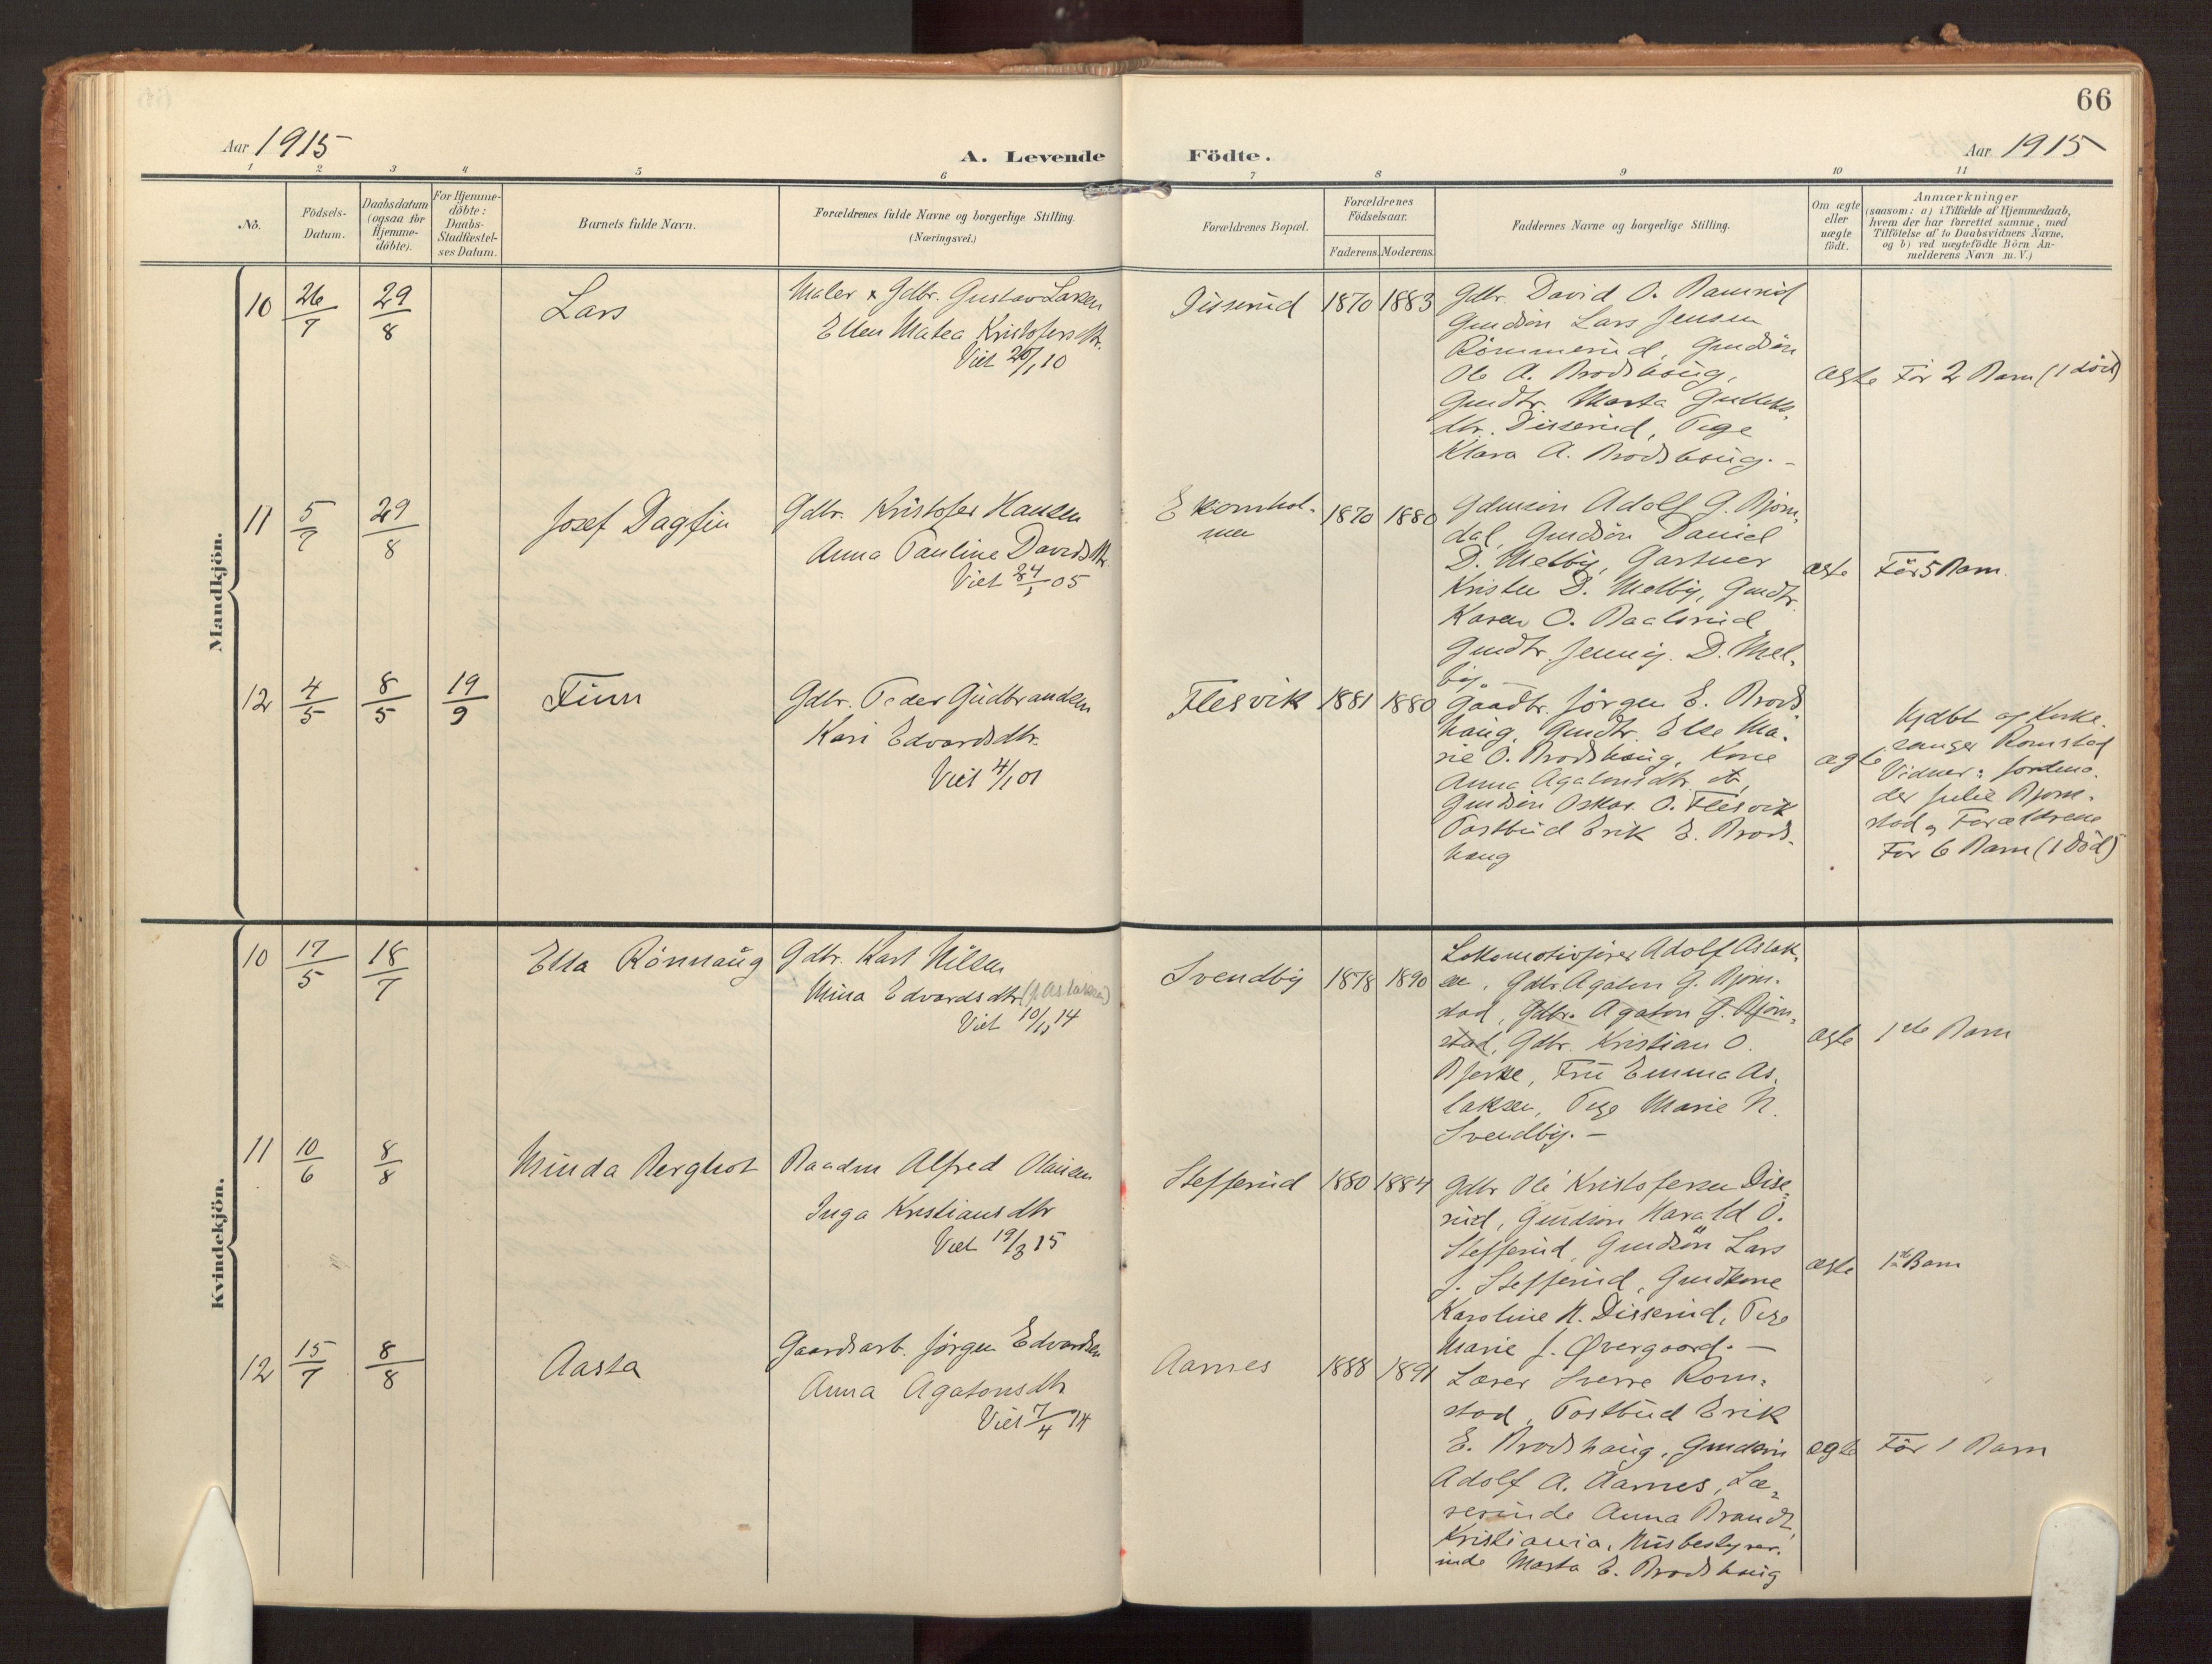 66
Aar 1915
A. Levende Födte.
Aar 1915
1 2 3 4 5 6 7 8 9 10 11
No.
Födsels-
Datum.
Daabsdatum
(ogsaa for
Hjemme-
döbte).
For Hjemme-
döbte:
Daabs-
Stadfæstel-
ses Datum.
Barnets fulde Navn.
Forældrenes fulde Navne og borgerlige Stilling.
(Næringsvei.)
Forældrenes Bopæl.
Forældrenes
Födselsaar.
Faderens. Moderens.
Faddernes Navne og borgerlige Stilling.
Om ægte
eller
uægte
födt.
Anmærkninger
(saasom: a) i Tilfælde af Hjemmedaab,
hvem der har forrettet samme, med
Tilföielse af to Daabsvidners Navne,
og b) ved uægtefödte Börn An-
melderens Navn m. V.)
Mandkjön.
10 26/7 29/8 Lars
Maler & Gdbr. Gustav Larsen
Ellen Matea Kristofersdtr.
Viet 20/1 10
Disserud 1870 1883
Gdbr. David O. Ramrud
Gmdsön Lars Jensen
Römmerud, Gmdsön
Ole A. Brodshaug,
Gmdtr. Marta Gulleks-
dtr. Disserud, Pige
Klara A. Brodshaug. -
ægte För 2 Barn (1 död)
11 5/7 29/8 Josef Dagfin
Gdbr. Kristofer Hansen
Anna Pauline Davidsdtr.
Viet 24/ 05
Ekornhol-
men
1870 1880
Gdmsön Adolf G. Bjørn-
dal, Gmdsön Daniel
D. Melby, Gartner
Kristen D. Melby, Gmdtr.
Karen O. Baalsrud
Gmdtr. Jenny D. Mel-
by. -
ægte För 5 Barn.
12 4/5 8/5 19/9 Finn
Gdbr. Peder Gudbrandsen
Kari Edvardsdtr.
Viet 4/1 01
Flesvik 1881 1880
Gaardbr. Jörgen E. Brods
haug, Gmdtr. Else Ma-
rie O. Brodshaug, Kone
Anna Agatonsdtr.
Gmdsön Oskar O. Flesvik
Postbud Erik E. Brods-
haug
ægte
Hjdbt af Kirke-
sanger Romstad
Vidner: Jordmo-
der Julie Bjørn-
stad og Forældrene
For 6 Barn (1 död)
Kvindekjön.
10 17/5 18/7 Elsa Rönnaug
Gdbr. Karl Nilsen
Mina Edvardsdtr (f. Aslaksen)
Viet 10/11 14
Svendby 1878 1890
Lokomotivfører Adolf Aslak-
sen, Gdbr. Agaton G. Bjørn-
stad, Gdbr. Agaton G. Bjørn-
stad, Gdbr. Kristian O.
Bjerke, Frü Emma As-
laksen, Pige Marie N.
Svendby. -
ægte 1ste Barn
11 10/6 8/8 Minda Bergliot
Baadm Alfred Olausen
Inga Kristiansdtr
Viet 19/3 15
Stefferud 1880 1884
Gdbr Ole Kristofersen Disse-
rud, Gmdsön Harald O.
Stefferud, Gmdsön Lars
J. Stefferud, Gmdkone
Karoline N. Disserud, Pige
Marie J. Øvergaard. -
ægte 1ste Barn
12 15/7 8/8 Aasta
Gaardsarb. Jörgen Edvardsen
Anna Agatonsdtr
Viet 7/4 14
Aarnes 1888 1891
Lærer Sverre Rom-
stad, Postbud Erik
E. Brodshaug, Gmdsön
Adolf A. Aarnes, Læ-
rerinde Anna Brandt,
Kristiania, Husbestyrer-
inde Marta E. Brodshaug
ægte För 1 Barn